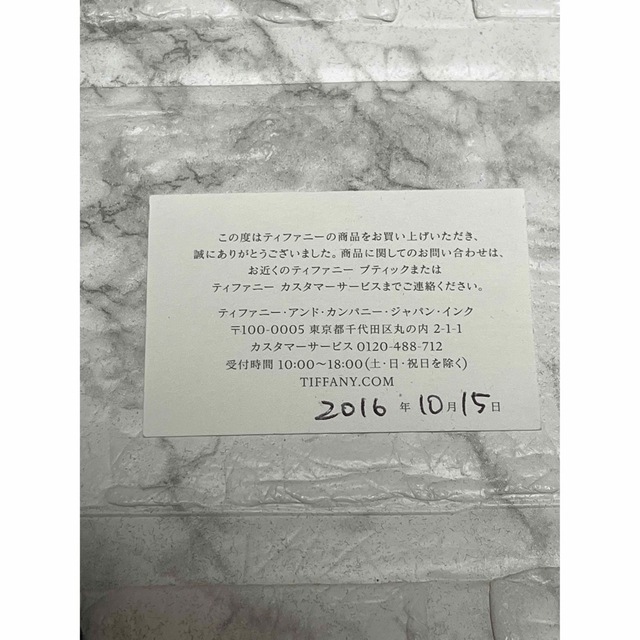 この度はティファニーの商品をお買い上げいただき、
誠にありがとうございました。商品に関してのお問い合わせは、
お近くのティファニー ブティックまたは
ティファニー カスタマーサービスまでご連絡ください。
ティファニー・アンド・カンパニー・ジャパン・インク
〒100-0005 東京都千代田区丸の内 2-1-1
カスタマーサービス 0120-488-712
受付時間 10:00〜18:00(土・日・祝日を除く)
TIFFANY.COM
2016 年 10月15日